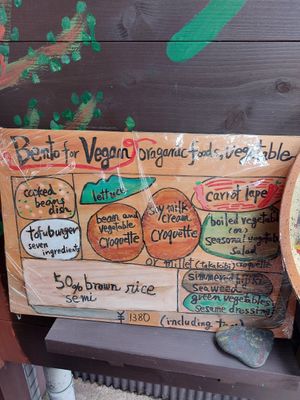 Bento for Vegan organic foods, vegetable
cooked
beans
dish
lettuce
carrot lape
tofuburger
seven ingredients
bean and
vegetable
croquette
soy milk
cream
croquette
boiled vegetable
(or)
seasonal vegetable
salad
or millet (takakibi) croquette
50% brown rice
semi
simmered
seaweed
green vegetables
sesame dressing
¥1380
(including tax)